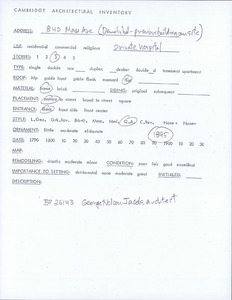 CAMBRIDGE ARCHITECTURAL INVENTORY
ADDRESS: 840 Mass Ave (Demolished - previous building on site)
USE: residential commercial religious private hospital
STORIES: 1 2 3 4 5
TYPE: single double row duplex decker double decker tenement apartment
ROOF: hip gable front gable flank mansard flat
MATERIAL: frame brick SIDING: original subsequent
PLACEMENT: to street broad to street square
ENTRANCE: front side front center
STYLE: Q.A.
ORNAMENT: little moderate elaborate 1895
DATE: 1790 1890 10 20 30 40 50 60 70 80 90 1900 10 20 30
MAP:
REMODELING: drastic moderate minor CONDITION: poor fair good excellent
IMPORTANCE TO SETTING: detrimental none moderate great INITIALED:
DESCRIPTION:
BP 26143 George Nolan Jacobs, architect